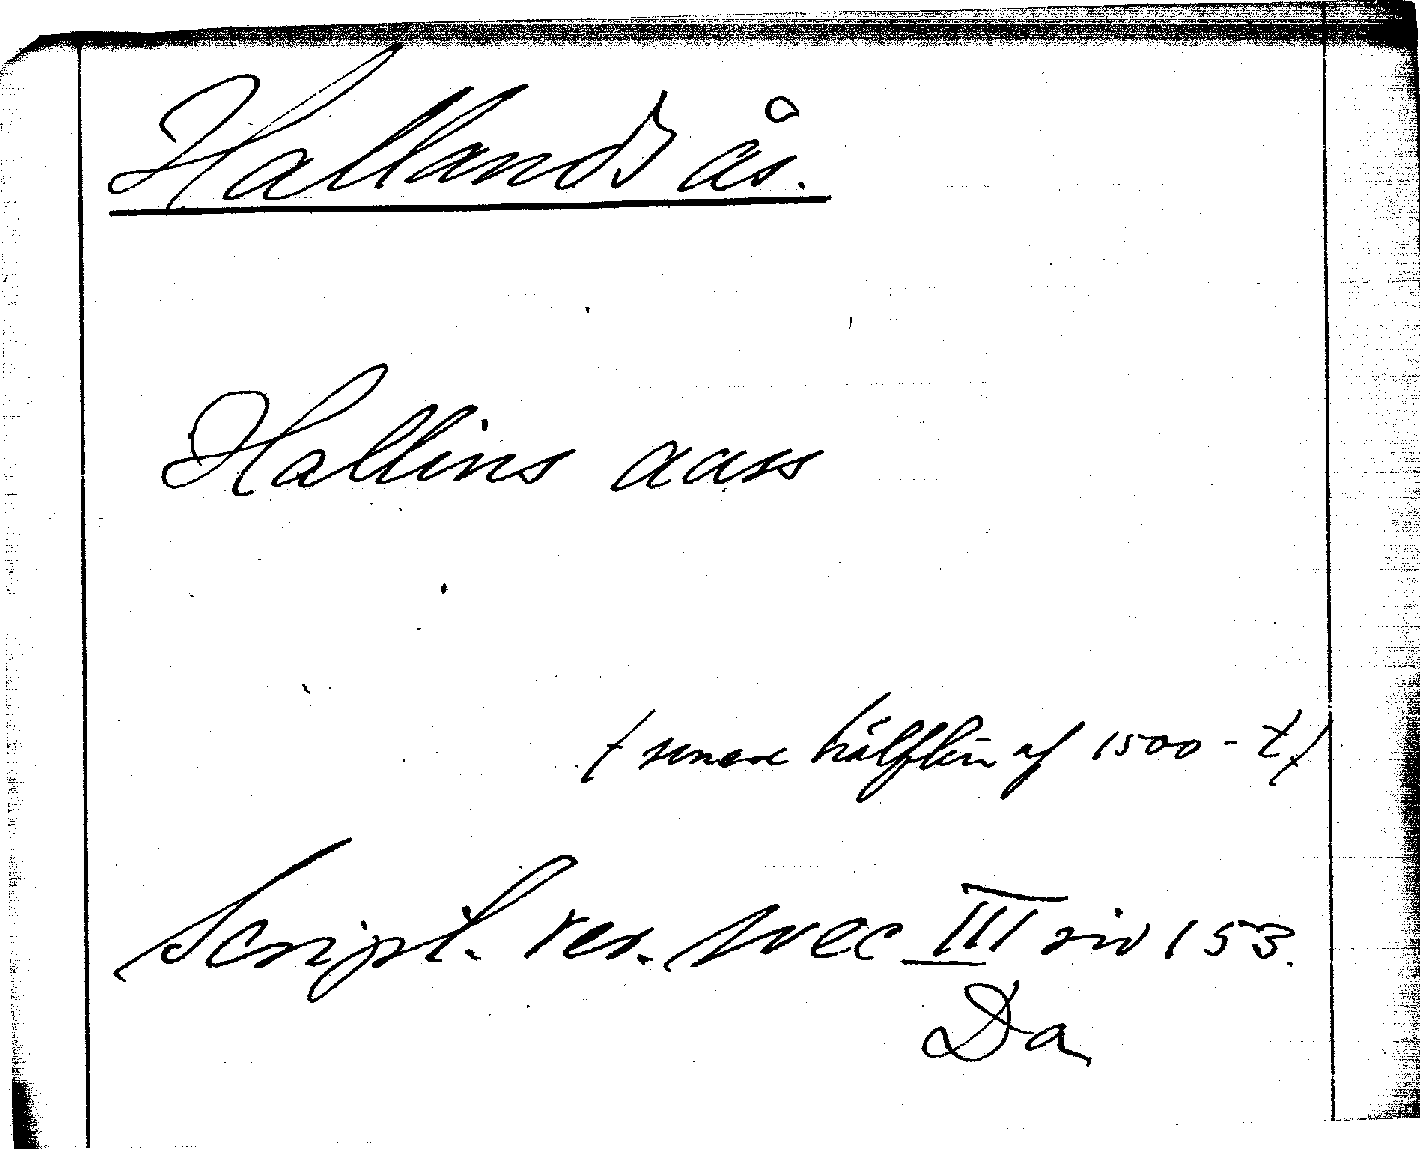 Hallands ås.
Hallins aass
(senare hälften af 1500-t)
Script. rer. svec III siv 153.
Da